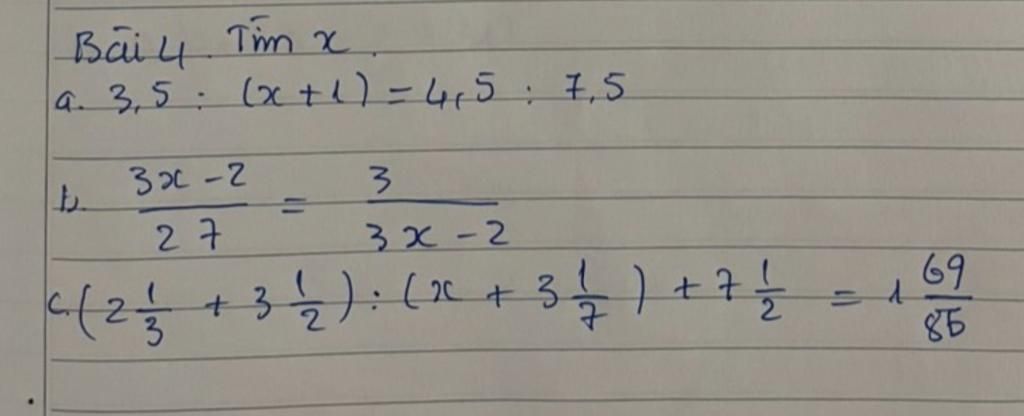 Bài 4. Tìm x.
a. 3,5 : (x + 1) = 4,5 : 7,5
b. \frac{3x - 2}{27} = \frac{3}{3x - 2}
c. (2\frac{1}{3} + 3\frac{1}{2}) : (x + 3\frac{1}{7}) + 7\frac{1}{2} = 1\frac{69}{86}